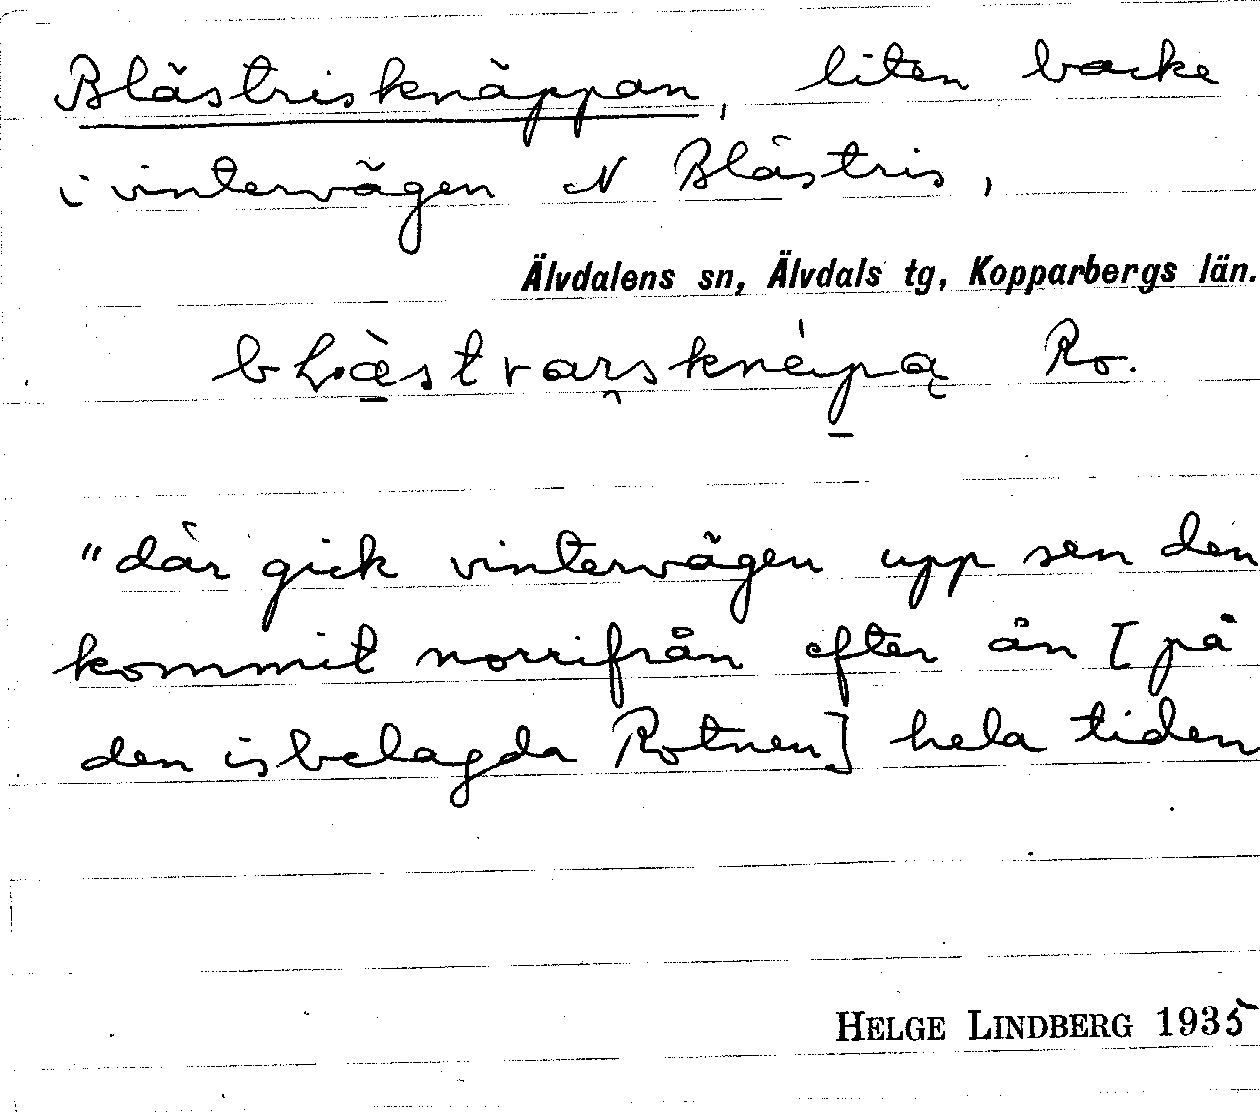 Blästrisknäppan, liten backe
i vintervägen N Blästris,
Älvdalens sn, Älvdals tg, Kopparbergs län.
Ro.
"där gick vintervägen upp sen den
kommit norrifrån efter ån [på
den isbelagda Rotnen] hela tiden
HELGE LINDBERG 1935